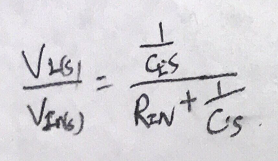 V₁(s) / V_IN(s) = (1 / C_i s) / (R_IN + 1 / C_i s)